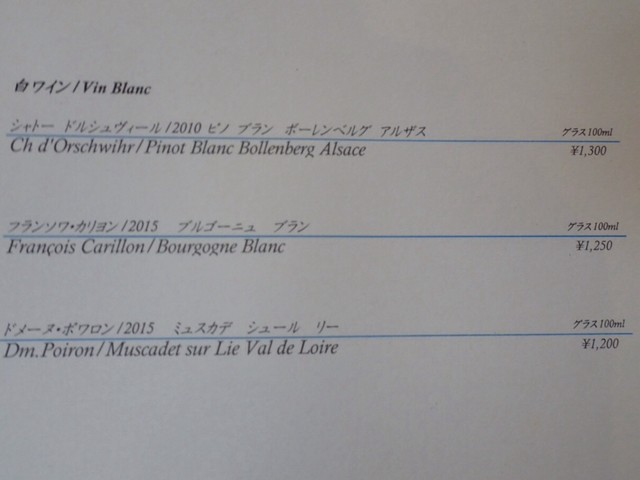 白ワイン/Vin Blanc
シャトー ドルシュヴィール/2010 ピノ ブラン ボーレンベルグ アルザス グラス100ml
Ch d'Orschwihr/Pinot Blanc Bollenberg Alsace ¥1,300
フランソワ・カリヨン/2015 ブルゴーニュ ブラン グラス100ml
François Carillon/Bourgogne Blanc ¥1,250
ドメーヌ・ポワロン/2015 ミュスカデ シュール リー グラス100ml
Dm.Poiron/Muscadet sur Lie Val de Loire ¥1,200